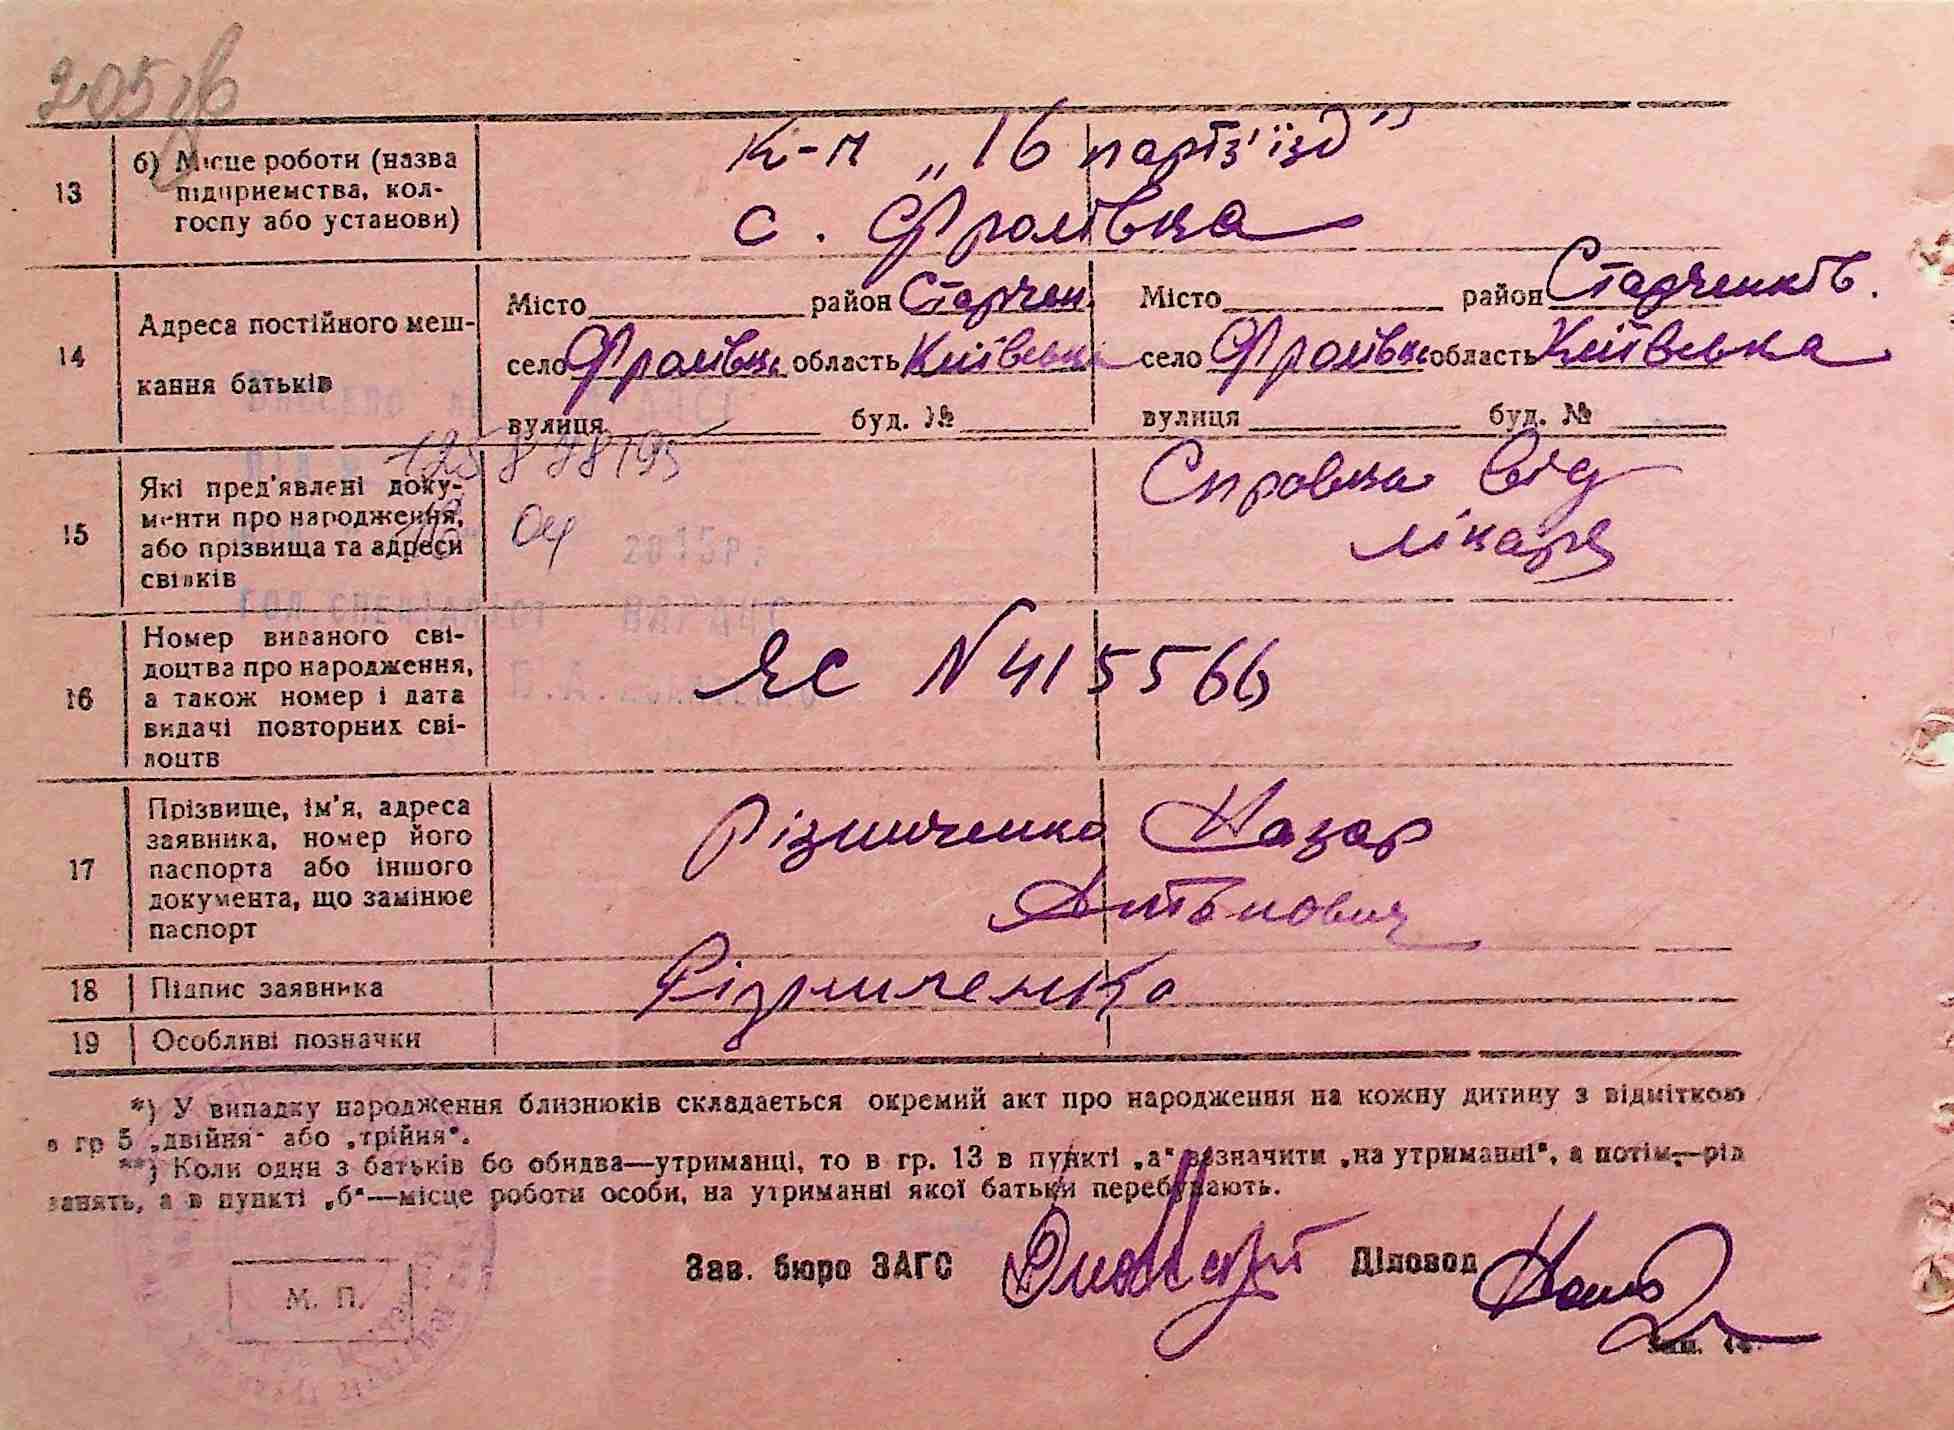 205 зв
13 б) Місце роботи (назва підприємства, колгоспу або установи) К-п „16 партз'їзд"
с. Фролівка
14 Адреса постійного мешкання батьків
Місто район Старчен. Місто район Старченків.
село Фролівка область Київська село Фролівка область Київська
вулиця буд. № вулиця буд. №
15 Які пред'явлені документи про народження, або прізвища та адреси свідків
Справка від
лікаря
04 2015р.
16 Номер виданого свідоцтва про народження, а також номер і дата видачі повторних свідоцтв
ЯС N 415566
17 Прізвище, ім'я, адреса заявника, номер його паспорта або іншого документа, що замінює паспорт
Різниченко Назар
Антонович
18 Підпис заявника Різниченко
19 Особливі позначки
*) У випадку народження близнюків складається окремий акт про народження на кожну дитину з відміткою
в гр 5 „двійня" або „трійня".
**) Коли один з батьків бо обидва—утриманці, то в гр. 13 в пункті „а" зазначити „на утриманні", а потім—рід
занять, а в пункті „б"—місце роботи особи, на утриманні якої батьки перебувають.
Зав. бюро ЗАГС Діловод
М. П.